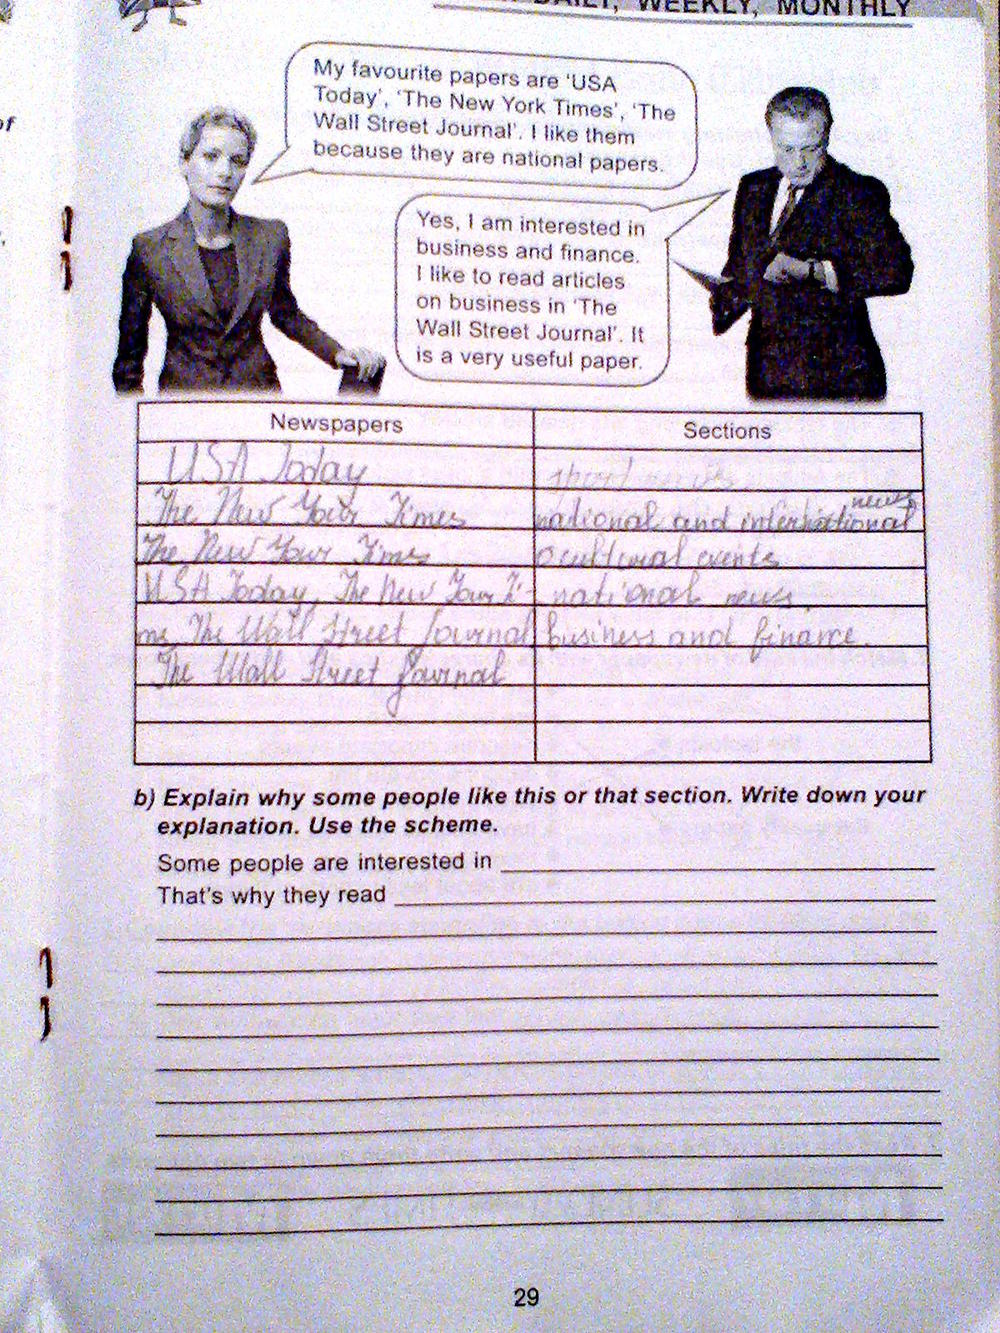 DAILY, WEEKLY, MONTHLY
of
My favourite papers are ‘USA
Today’, ‘The New York Times’, ‘The
Wall Street Journal’. I like them
because they are national papers.
Yes, I am interested in
business and finance.
I like to read articles
on business in ‘The
Wall Street Journal’. It
is a very useful paper.
Newspapers
Sections
USA Today
sport news
The New Your Times
national and international news
The New Your Times
cultural events
USA Today, The New Your Ti-
national news.
me, The Wall Street Journal
business and finance.
The Wall Street Journal
b) Explain why some people like this or that section. Write down your
explanation. Use the scheme.
Some people are interested in
That’s why they read
29